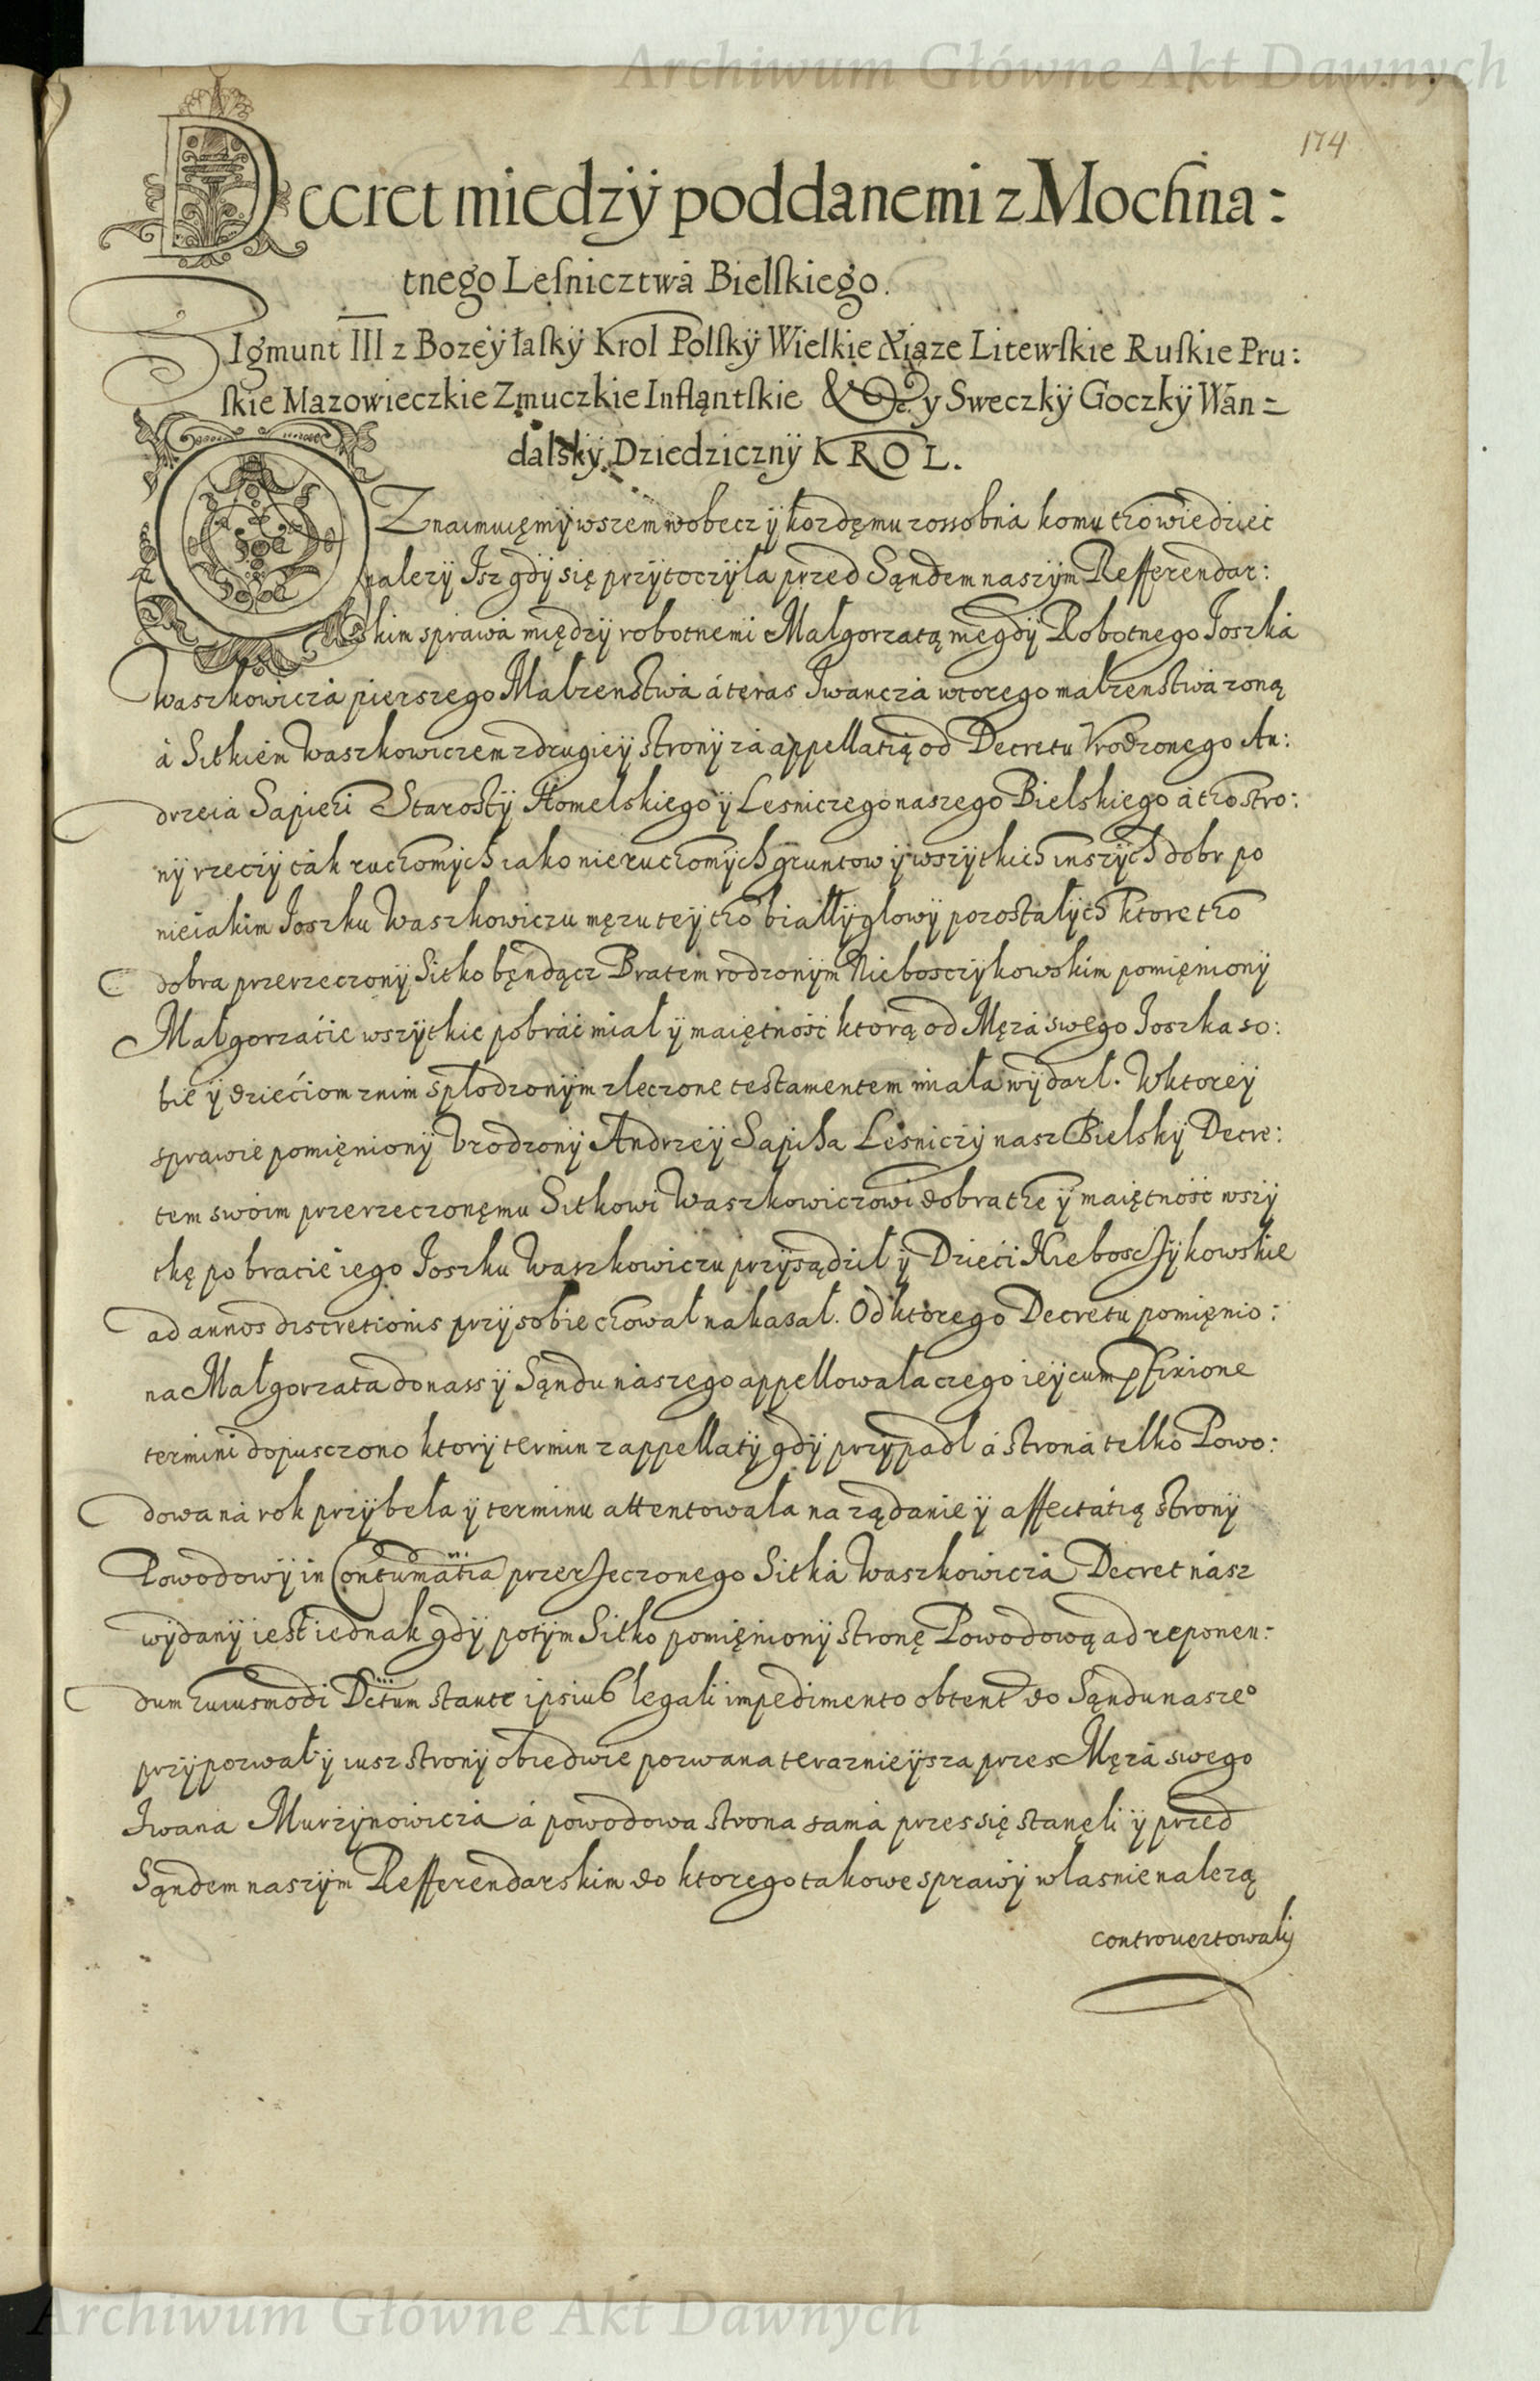 Archiwum Główne Akt Dawnych
174
Decret miedzÿ poddanemi z Mochna:
tnego Leſnicztwá Bielſkiego.
Zigmunt III z Bozeÿ łaſkÿ Krol Polſkÿ Wielkie Xiąze Litewſkie Ruſkie Pru:
ſkie Mazowieczkie Zmuczkie Infląntſkie &c y Sweczkÿ Goczkÿ Wan=
dalſkÿ Dziedzicznÿ KROL.
OZnaimuięmÿ wszem wobecz ÿ kozdęmu zossobná komu tho wiedzieć
nalezÿ Isz gdÿ się przÿtoczÿła przed Sąndem naszÿm Refferendar:
skim sprawá międzÿ robotnemi Małgorzatą męgdÿ Robotnego Joszká
Waszkowiczá pierszego Małzenstwá á teras Iwanczá wtorego małzenstwá zoną
á Sitkiem Waszkowiczem z drugieÿ stronÿ zá appellatią od Decretu Vrodzonego An:
drzeia Sapiehi Starostÿ Homelskiego ÿ Lesniczego naszego Bielskiego á tho stro:
nÿ rzeczÿ ták ruchomÿch iako nieruchomÿch gruntow ÿ wszÿtkich inszÿch dobr po
nieiakim Joszku Waszkowiczu męzu teÿ tho białłÿglowÿ pozostałÿch ktore tho
dobra przerzeczonÿ Sitko będącz Bratem rodzonÿm Nieboszczÿkowskim pomięnionÿ
Małgorzáćie wszÿtkie pobráć miał ÿ maiętność ktorą od Męzá swego Joszka so:
bie ÿ dziećiom z nim spłodzonÿm zleczone testamentem miała wÿdarł. W ktoreÿ
sprawie pomięnionÿ Vrodzonÿ Andrzeÿ Sapiha Lesniczÿ nasz Bielskÿ Decre:
tem swoim przerzeczonęmu Sitkowi Waszkowiczowi dobra the ÿ maiętność wszÿ
tkę po bracie iego Joszku Waszkowiczu przÿsądził ÿ Dzieći Nieboszczÿkowskie
ad annos discretionis przÿ sobie chował nakasał. Od ktorego Decretu pomięnio:
na Małgorzata do nass ÿ Sąndu nászego appellowała czego ieÿ cum pfixione
termini dopusczono ktorÿ termin z appellatÿ gdÿ przÿpadł á stroná telko Powo:
dowa ná rok przÿbeła ÿ terminu attentowała na ządanie ÿ affectátią stronÿ
Powodowÿ in Contumátia przerzeczonego Sitká Waszkowiczá Decret nász
wÿdanÿ iest iednak gdÿ potÿm Sitko pomięnionÿ stronę Powodową ad reponen:
dum huiusmodi Dctum stante ipsius legali impedimento obtent do Sąndu nasze°
przÿpozwał ÿ iusz stronÿ obiedwie pozwana teraznieÿsza przes Męzá swego
Iwana Murzÿnowiczá á powodowa strona samá przes się stanęli ÿ przed
Sąndem naszÿm Refferendarskim do ktorego takowe sprawÿ własnie nalezą
controuertowali
Archiwum Główne Akt Dawnych